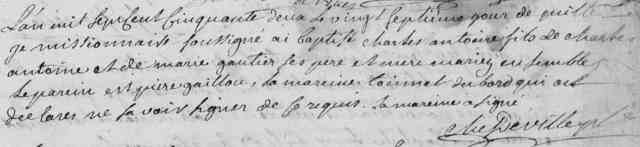 L'an mil sept Cent Cinquante deux Le vingt septieme jour de juillet
je missionnaire soussigné ai baptisé charles antoine fils de charles
antoine et de marie gautier ses pere et mere mariez en semble
Le parein est piere gaillou, la mareine toinnet dubord qui ont
declarés ne sa voir signer de ce requis. la mareine a signé